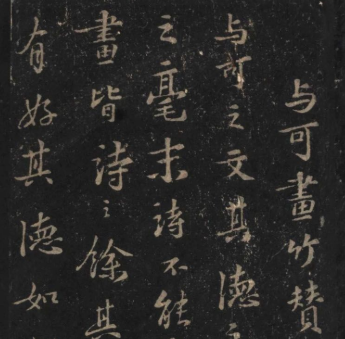 与可畫竹赞
与可之文其德之
之毫末詩不能
畫皆詩之餘其
有好其德如